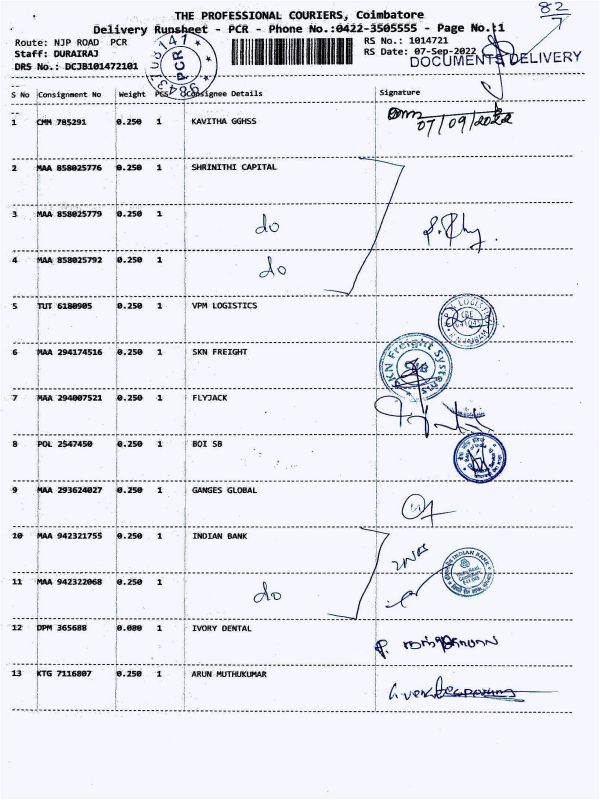 82
7
THE PROFESSIONAL COURIERS, Coimbatore
Delivery Runsheet - PCR - Phone No.:0422-3505555 - Page No.:1
Route: NJP ROAD PCR
RS No.: 1014721
Staff: DURAIRAJ
RS Date: 07-Sep-2022
DRS No.: DCJB101472101
DOCUMENTS DELIVERY
PCR
S No Consignment No Weight PCS Consignee Details Signature
1 CMM 785291 0.250 1 KAVITHA GGHSS
07/09/2022
2 MAA 858025776 0.250 1 SHRINITHI CAPITAL
3 MAA 858025779 0.250 1 do
4 MAA 858025792 0.250 1 do
5 TUT 6180905 0.250 1 VPM LOGISTICS
6 MAA 294174516 0.250 1 SKN FREIGHT
SKN Freight Systems
7 MAA 294007521 0.250 1 FLYJACK
8 POL 2547450 0.250 1 BOI SB
9 MAA 293624027 0.250 1 GANGES GLOBAL
10 MAA 942321755 0.250 1 INDIAN BANK
INDIAN BANK
11 MAA 942322068 0.250 1 do
12 DPM 365688 0.080 1 IVORY DENTAL
13 KTG 7116807 0.250 1 ARUN MUTHUKUMAR